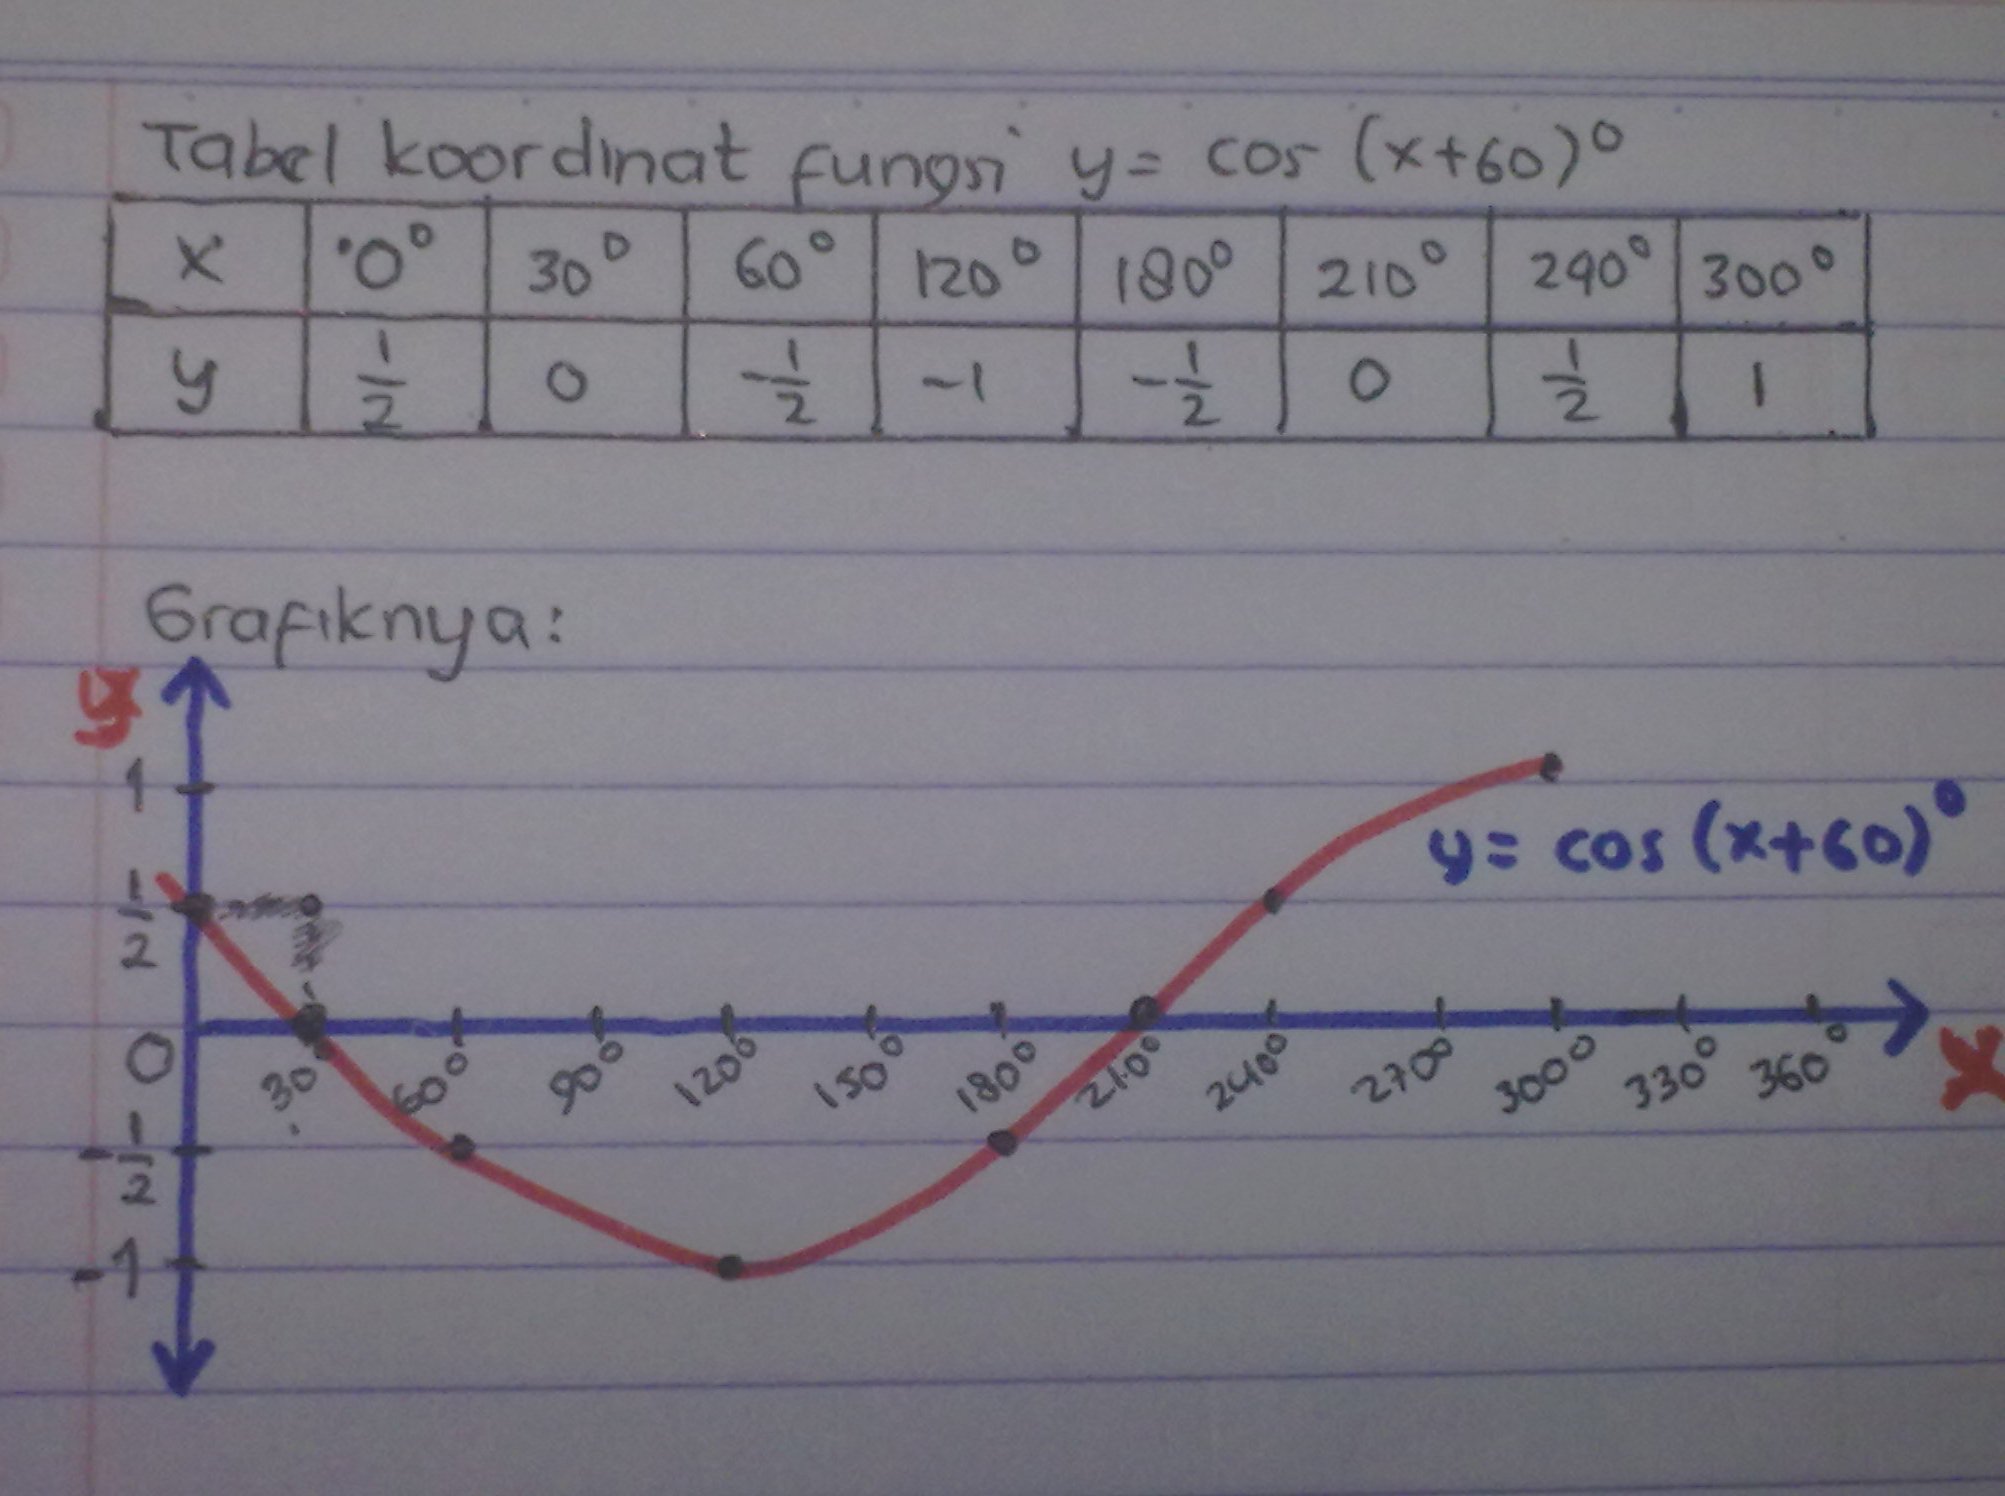 Tabel koordinat fungsi y = cos (x+60)⁰
x 0⁰ 30⁰ 60⁰ 120⁰ 180⁰ 210⁰ 240⁰ 300⁰
y 1/2 0 -1/2 -1 -1/2 0 1/2 1
Grafiknya:
y
1
y = cos (x+60)⁰
1/2
0
30 60⁰ 90⁰ 120⁰ 150⁰ 180⁰ 210⁰ 240⁰ 270⁰ 300⁰ 330⁰ 360⁰
x
-1/2
-1